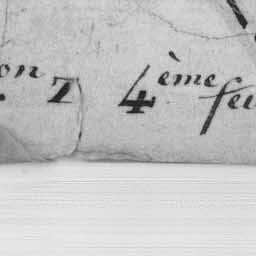 on Z 4ème feu